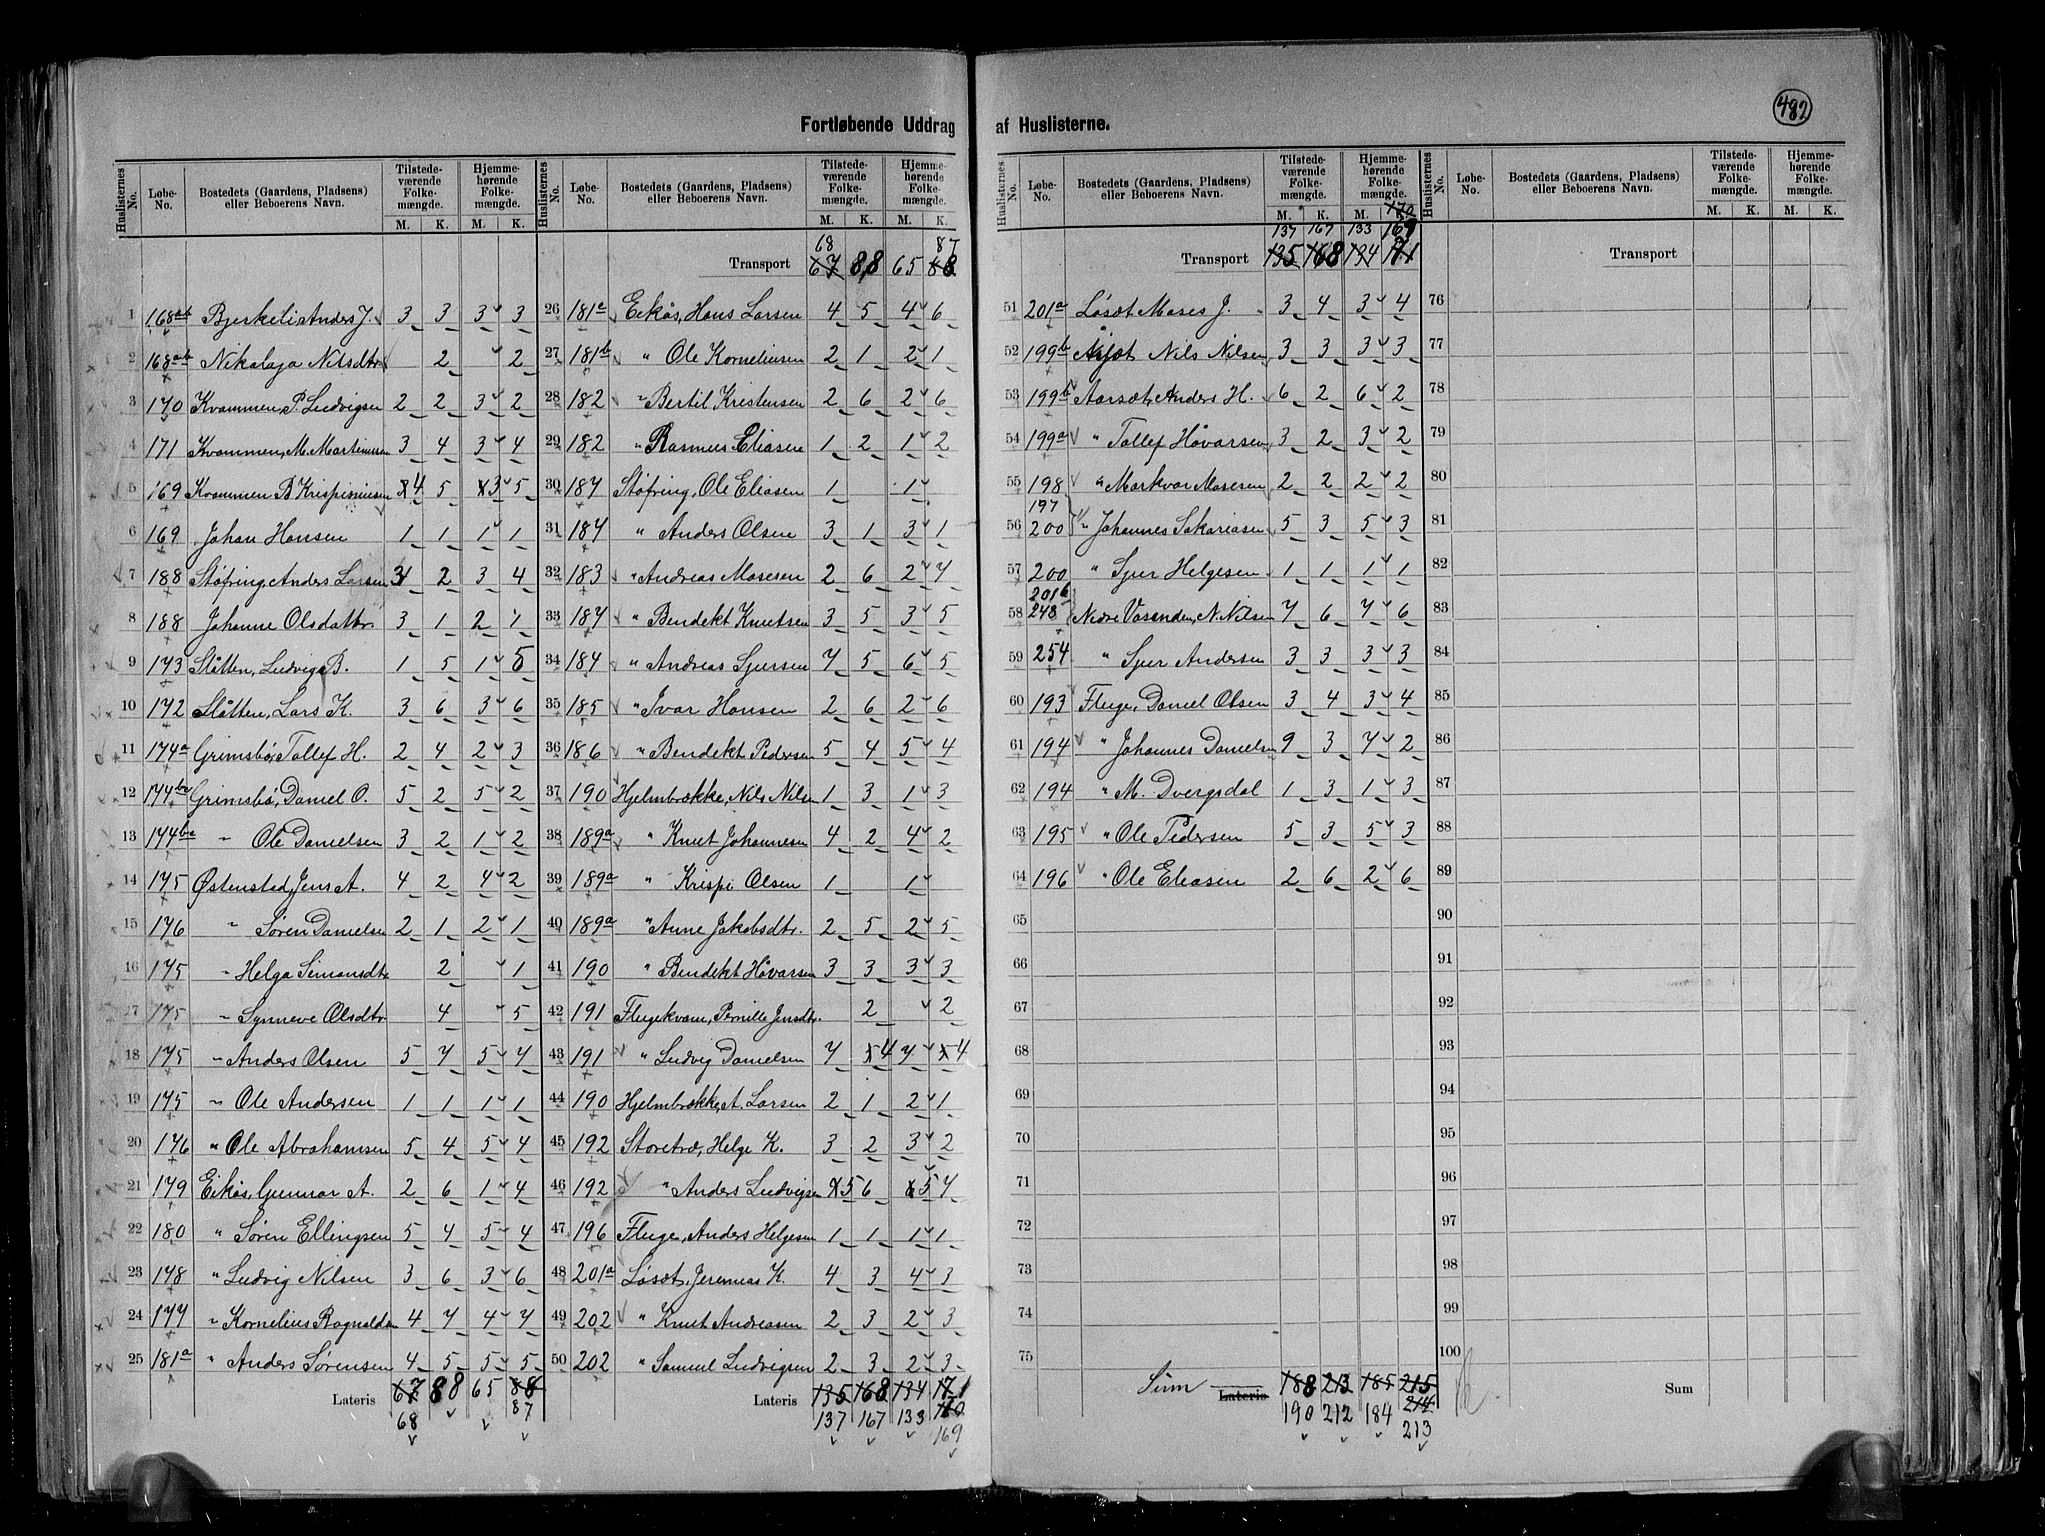 482
Fortløbende Uddrag af Huslisterne.
Huslisternes No. Løbe-No. Bostedets (Gaardens, Pladsens) eller Beboerens Navn. Tilstedeværende Folkemængde. M. K. Hjemmehørende Folkemængde. M. K.
1 168ab Bjerkeli Anders J. 3 3 3 3
2 168ab Nikolaja Nilsdtr 2 2
3 170 Kvammen, P. Ludvigsen 2 2 3 2
4 171 Kvammen, M. Martinussen 3 4 3 4
5 169 Kvammen B Krispinusen 4 5 3 5
6 169 Johan Hansen 1 1 1 1
7 188 Støfring Anders Larsen 3 2 3 4
8 188 Johanne Olsdattr 3 1 2 1
9 173 Slåtten, Ludvig B. 1 5 1 5
10 172 Slåtten, Lars K. 3 6 3 6
11 174a Grimsbø, Tollef H. 2 4 2 3
12 174bc Grimsbø, Daniel O. 5 2 5 2
13 174bc " Ole Danielsen 3 2 1 2
14 175 Østenstad, Jens A. 4 2 4 2
15 176 " Søren Danielsen 2 1 2 1
16 175 " Helga Simonsdtr 2 1
17 175 " Synneve Olsdtr 4 5
18 175 " Anders Olsen 5 7 5 7
19 175 " Ole Andersen 1 1 1 1
20 176 " Ole Abrahamsen 5 4 5 4
21 179 Eikås, Gunnar A. 2 6 1 4
22 180 " Søren Ellingsen 5 4 5 4
23 178 " Ludvig Nilsen 3 6 3 6
24 177 " Kornelius Ragnalds 4 7 4 7
25 181a " Anders Sørensen 4 5 5 5
Lateris 67 88 65 88
68 87
Huslisternes No. Løbe-No. Bostedets (Gaardens, Pladsens) eller Beboerens Navn. Tilstedeværende Folkemængde. M. K. Hjemmehørende Folkemængde. M. K.
68 87
Transport 67 88 65 88
26 181a Eikås, Hans Larsen 4 5 4 6
27 181b " Ole Korneliusen 2 1 2 1
28 182 " Bertil Kristensen 2 6 2 6
29 182 " Rasmus Eliasen 1 2 1 2
30 187 Støfring, Ole Eliasen 1 1
31 187 " Anders Olsen 3 1 3 1
32 183 " Andreas Mosesen 2 6 2 7
33 187 " Bendekt Knutsen 3 5 3 5
34 187 " Andreas Sjursen 7 5 6 5
35 185 " Ivar Hansen 2 6 2 6
36 186 " Bendekt Pedersen 5 4 5 4
37 190 Hjelmbrække, Nils Nilsen 1 3 1 3
38 189a " Knut Johannesen 4 2 4 2
39 189a " Krispi Olsen 1 1
40 189a " Anne Jakobsdtr. 2 5 2 5
41 190 " Bendekt Håvarsen 3 3 3 3
42 191 Flugekvam, Pernille Jensdtr. 2 2
43 191 " Ludvig Danielsen 7 4 7 4
44 190 Hjelmbrække, A. Larsen 2 1 2 1
45 192 Storetræ, Helge K. 3 2 3 2
46 192 " Anders Ludvigsen 5 6 5 7
47 196 Fluge, Anders Helgesen 1 1 1 1
48 201a Løsæt, Jeremias K. 4 3 4 3
49 202 " Knut Andreasen 2 3 2 3
50 202 " Samuel Ludvigsen 2 3 2 3
Lateris 135 168 134 171
137 167 133 170
169
Huslisternes No. Løbe-No. Bostedets (Gaardens, Pladsens) eller Beboerens Navn. Tilstedeværende Folkemængde. M. K. Hjemmehørende Folkemængde. M. K.
170
137 167 133 169
Transport 135 168 134 171
51 201a Løsæt Moses J. 3 4 3 4
52 199b Nils Nilsen 3 3 3 3
53 199b Aarsæt, Anders H. 6 2 6 2
54 199a " Tollef Håvarsen 3 2 3 2
55 198 " Markvar Mosesen 2 2 2 2
197
56 200 " Johannes Sakariasen 5 3 5 3
57 200 " Sjur Helgesen 1 1 1 1
201b
58 248 Nedre Vasenden, N. Nilsen 7 6 7 6
59 254 " Sjur Andersen 3 3 3 3
60 193 Fluge, Daniel Olsen 3 4 3 4
61 194 " Johannes Danielsen 9 3 7 2
62 194 " M. Dvergsdal 1 3 1 3
63 195 " Ole Pedersen 5 3 5 3
64 196 " Ole Eliasen 2 6 2 6
65
66
67
68
69
70
71
72
73
74
75
Sum Lateris 188 213 185 215
190 212 184 214
213
Huslisternes No. Løbe-No. Bostedets (Gaardens, Pladsens) eller Beboerens Navn. Tilstedeværende Folkemængde. M. K. Hjemmehørende Folkemængde. M. K.
Transport
76
77
78
79
80
81
82
83
84
85
86
87
88
89
90
91
92
93
94
95
96
97
98
99
100
Sum